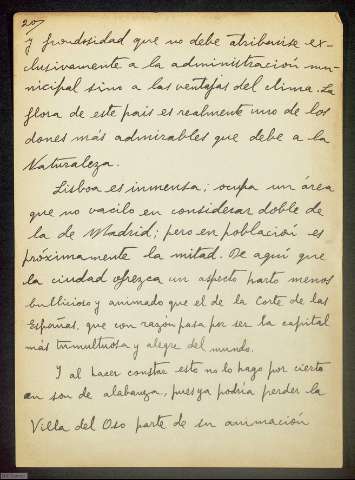 20)
y frondosidad que no debe atribuirse ex-
clusivamente a la administración mu-
nicipal sino a las ventajas del clima. La
flora de este país es realmente uno de los
dones más admirables que debe a la
Naturaleza.
Lisboa es inmensa; ocupa un área
que no vacilo en considerar doble de
la de Madrid; pero en población es
próximamente la mitad. De aquí que
la ciudad ofrezca un aspecto harto menos
bullicioso y animado que el de la Corte de las
Españas, que con razón pasa por ser la capital
más tumultuosa y alegre del mundo.
Y al hacer constar esto no lo hago por cierto
en son de alabanza, pues ya podría perder la
Villa del Oso parte de su animación